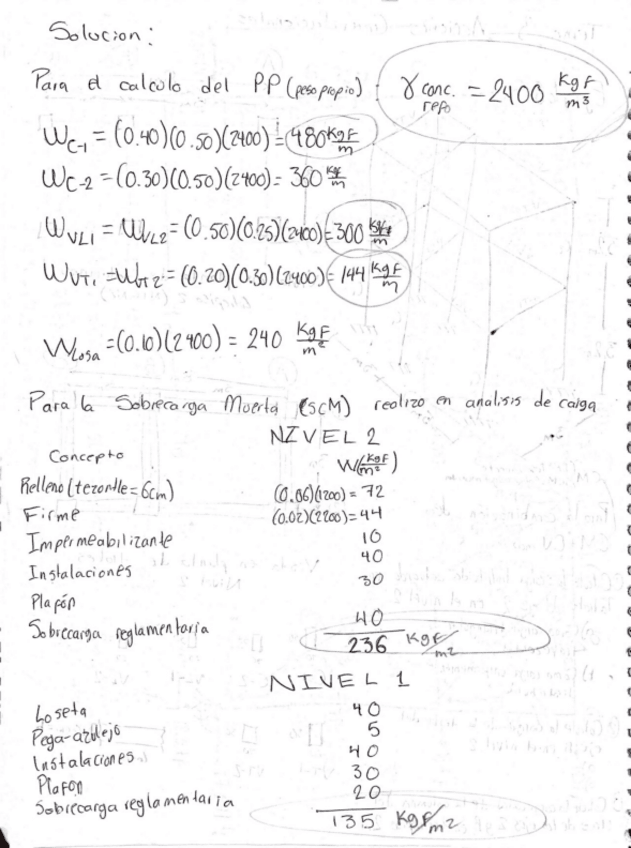 Solucion:
Para el calculo del PP (peso propio) : γ conc. refo = 2400 KgF/m³
WC-1 = (0.40)(0.50)(2400) = 480 KgF/m
WC-2 = (0.30)(0.50)(2400) = 360 KgF/m
WVL1 = WVL2 = (0.50)(0.25)(2400) = 300 KgF/m
WVT1 = WVT2 = (0.20)(0.30)(2400) = 144 KgF/m
WLosa = (0.10)(2400) = 240 KgF/m²
Para la Sobrecarga Muerta (SCM) realizo en analisis de carga
NIVEL 2
Concepto W(KgF/m²)
Relleno (tezontle = 6cm) (0.06)(1200) = 72
Firme (0.02)(2200) = 44
Impermeabilizante 10
Instalaciones 40
Plafón 30
Sobrecarga reglamentaria 40
236 KgF/m²
NIVEL 1
Loseta 40
Pega-azulejo 5
Instalaciones 40
Plafon 30
Sobrecarga reglamentaria 20
135 KgF/m²